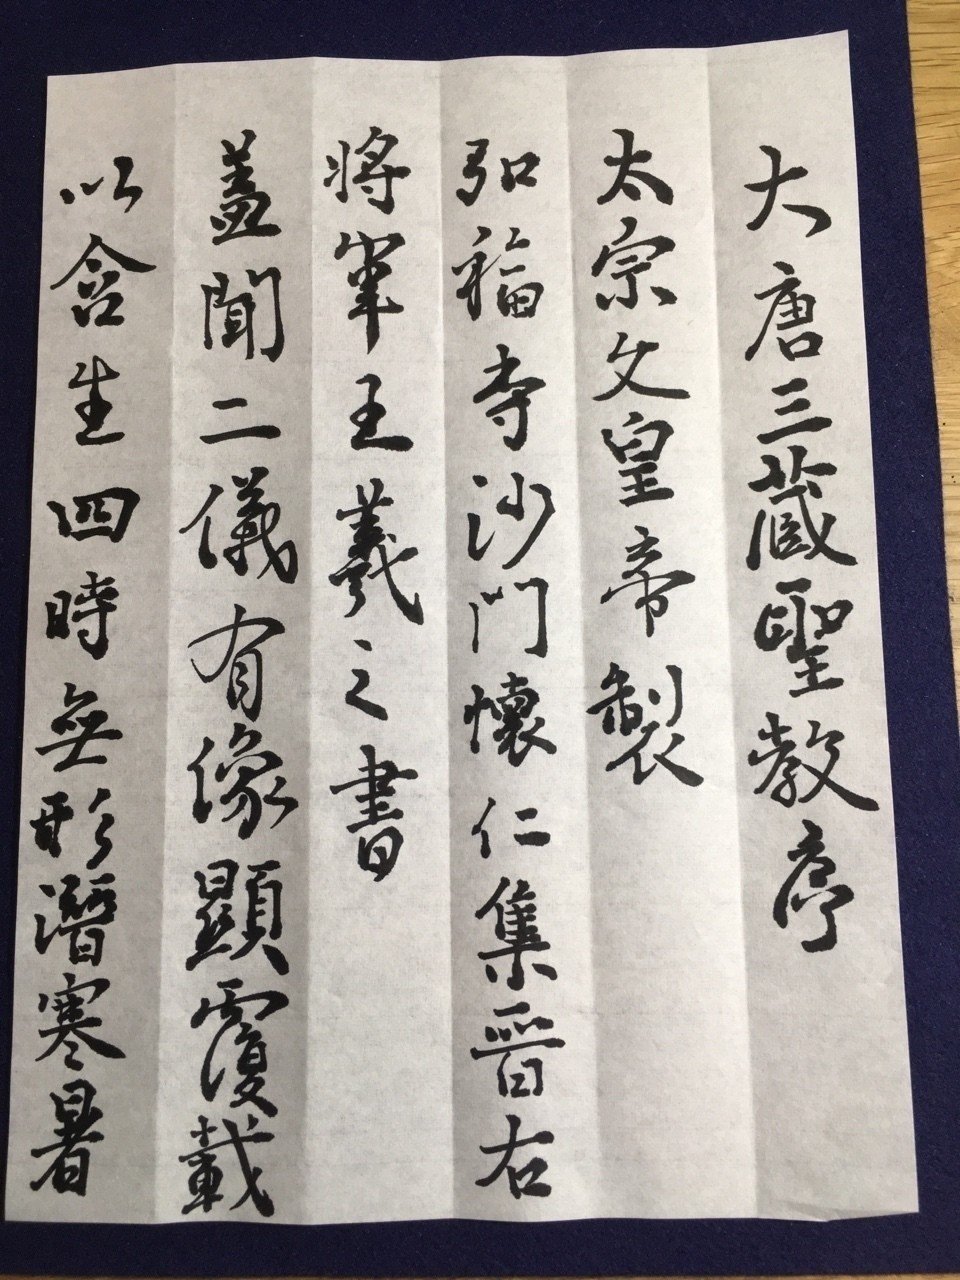 大唐三蔵聖教序
太宗文皇帝製
弘福寺沙門懐仁集晋右
将軍王羲之書
蓋聞二儀有像顕覆載
以含生四時無形潜寒暑